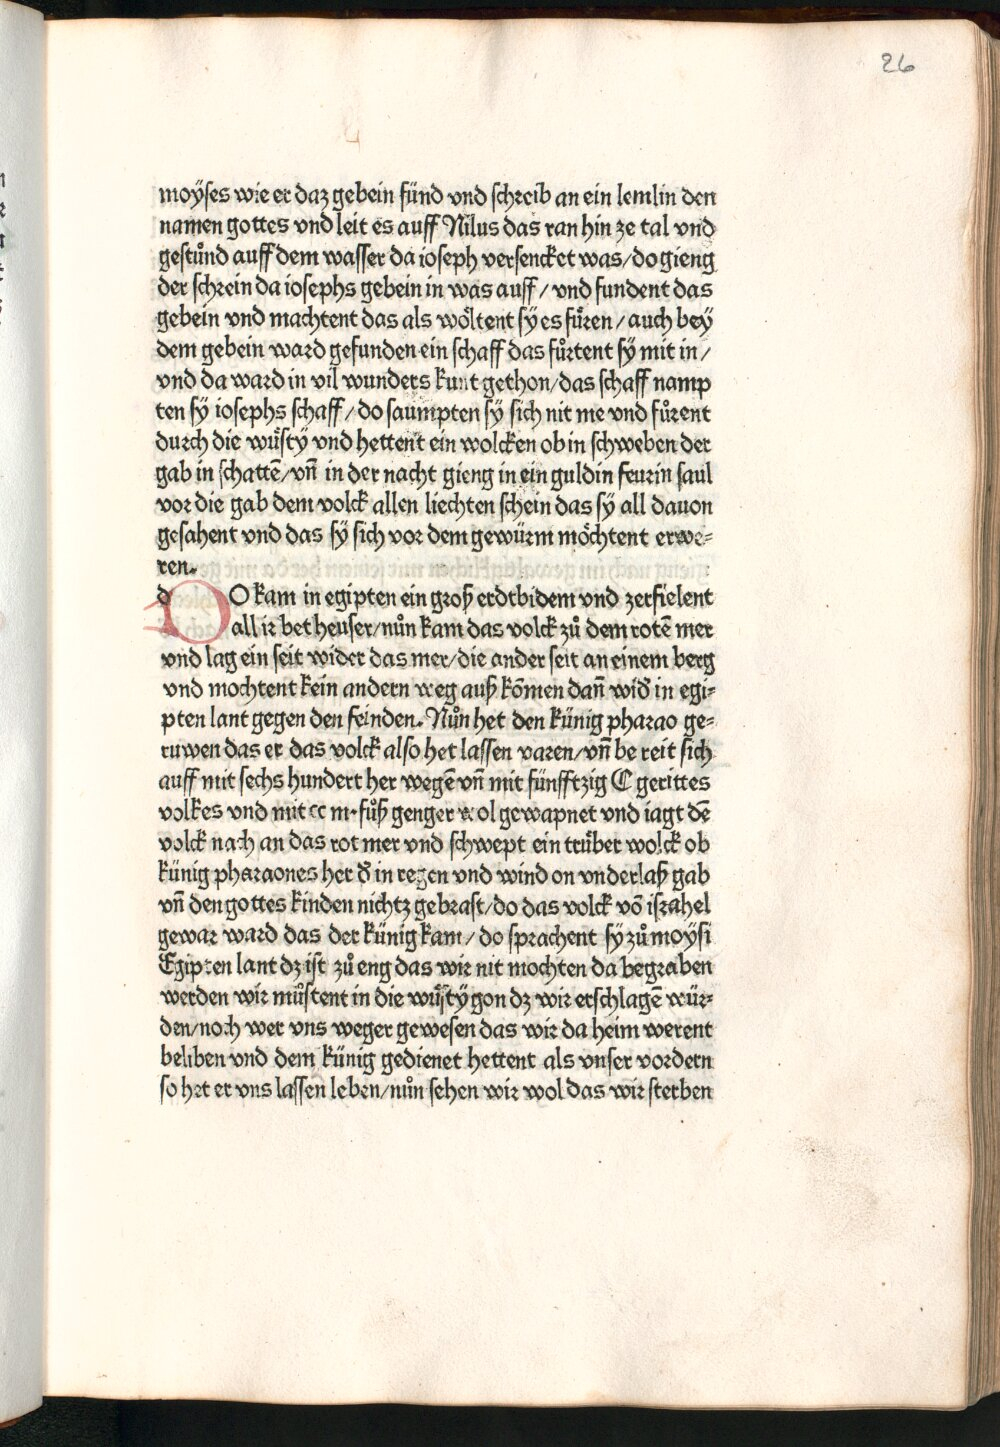 26
moÿses wie er daz gebein fünd vnd schreib an ein lemlin den
namen gottes vnd leit es auff Nilus das ran hin ze tal vnd
gestůnd auff dem wasser da ioseph versencket was/do gieng
der schrein da iosephs gebein in was auff/vnd fundent das
gebein vnd machtent das als wöltent sÿ es fůren/auch beÿ
dem gebein ward gefunden ein schaff das fůrtent sÿ mit in/
vnd da ward in vil wunders kunt gethon/das schaff namp
ten sÿ iosephs schaff/do saumpten sÿ sich nit me vnd fůrent
durch die wůstÿ vnd hettent ein wolcken ob in schweben der
gab in schattē/vn̄ in der nacht gieng in ein guldin feurin saul
vor die gab dem volck allen liechten schein das sÿ all dauon
gesahent vnd das sÿ sich vor dem gewürm möchtent erwe⸗
ren.
dO kam in egipten ein groß erdtbidem vnd zerfielent
all ir bet heuser/nůn kam das volck zů dem rotē mer
vnd lag ein seit wider das mer/die ander seit an einem berg
vnd mochtent kein andern weg auß kōmen dan̄ wiđ in egi⸗
pten lant gegen den feinden. Nůn het den künig pharao ge⸗
ruwen das er das volck also het lassen varen/vn̄ be reit sich
auff mit sechs hundert her wegē vn̄ mit fünfftzig C gerittes
volkes vnd mit cc m. fůß genger wol gewapnet vnd iagt dē
volck nach an das rot mer vnd schwept ein trüber wolck ob
künig pharaones her đ in regen vnd wind on vnderlaß gab
vn̄ den gottes kinden nichtz gebrast/do das volck vō israhel
gewar ward das der künig kam/do sprachent sÿ zů moÿsi
Egipten lant dz ist zů eng das wir nit mochten da begraben
werden wir můstent in die wůstÿ gon dz wir erschlagē wür⸗
den/noch wer vns weger gewesen das wir da heim werent
beliben vnd dem künig gedienet hettent als vnser vordern
so het er vns lassen leben/nůn sehen wir wol das wir sterben